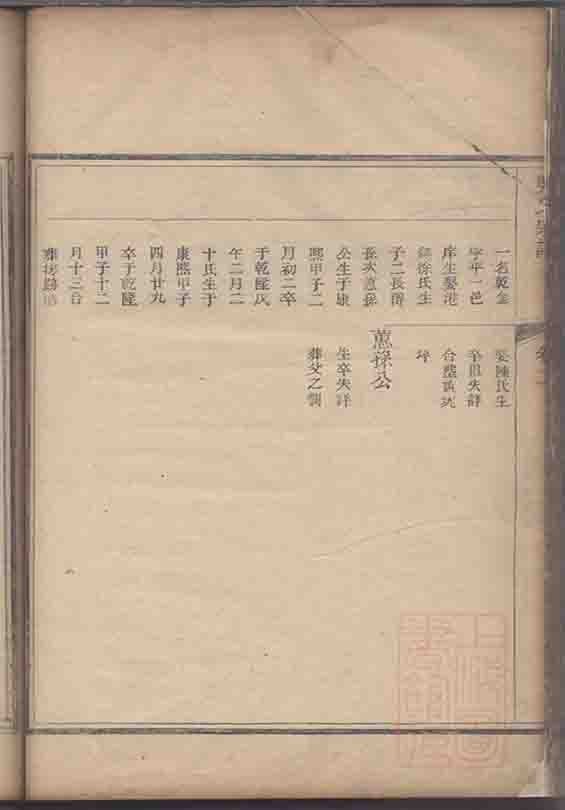 一名乾金
字年一邑
庠生娶港
徐氏生
子二長傳
孫次蕙孫
公生于康
熙甲子二
月初二卒
于乾隆戊
午二月二
十氏生于
康熙甲子
四月廿九
卒于乾隆
甲子十二
月十三合
葬
娶陳氏生
卒俱失詳
合葬
坪
蕙孫公
生卒失詳
葬父之側